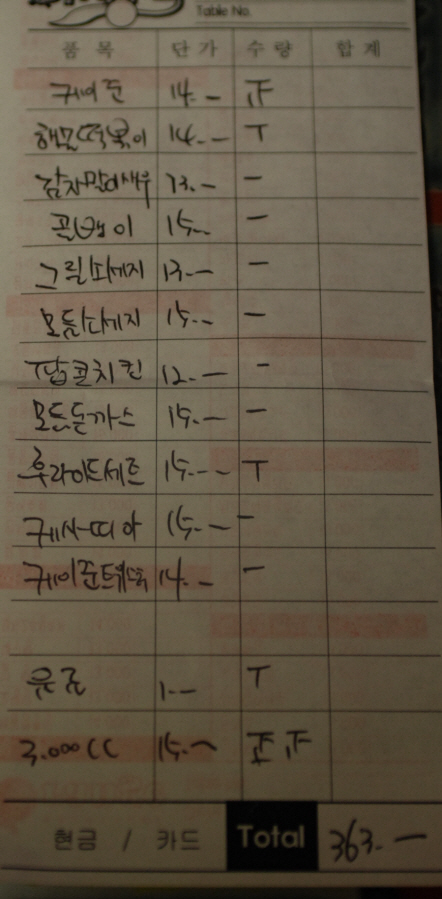 Table No.
품 목 단 가 수 량 합 계
케이준 14.- 正
해물떡볶이 14.- T
감자말이새우 13.- -
골뱅이 15.- -
그릴소세지 13.- -
모듬소세지 15.- -
팝콘치킨 12.- -
모듬돈까스 15.- -
후라이드세트 15.- T
케사디아 15.- -
14.- -
음료 1.- T
3.000CC 15.- 正 正
현금 / 카드 Total 363.-